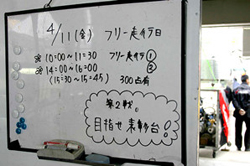 4/11(金) フリー走行日
10:00〜11:30 フリー走行①
14:00〜16:00 ②
(15:30〜15:45) 300点有
第2戦。
目指せ表彰台。